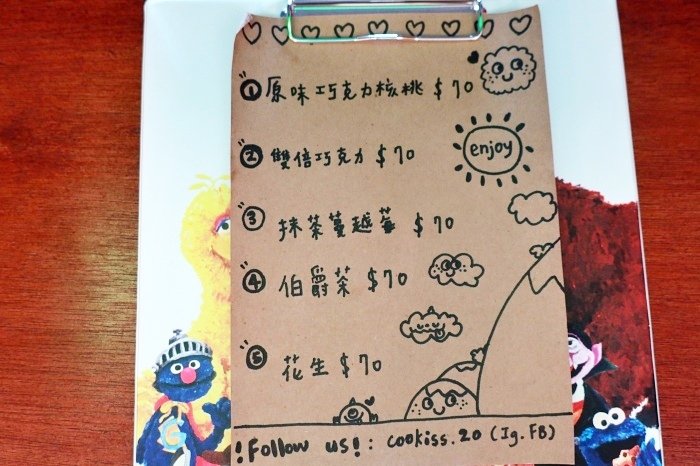 ① 原味巧克力核桃 $70
enjoy
② 雙倍巧克力 $70
③ 抹茶蔓越莓 $70
④ 伯爵茶 $70
⑤ 花生 $70
!Follow us!: cookiss.20 (Ig.FB)
G